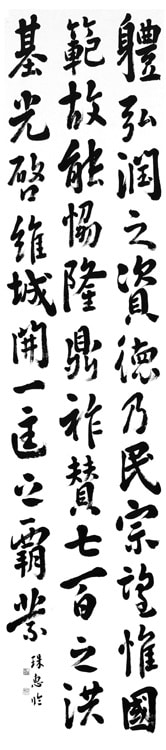 體弘潤之資德乃民宗望惟國
範故能協隆鼎祚贊七百之洪
基光啓維城開一匡之霸業
珠惠临